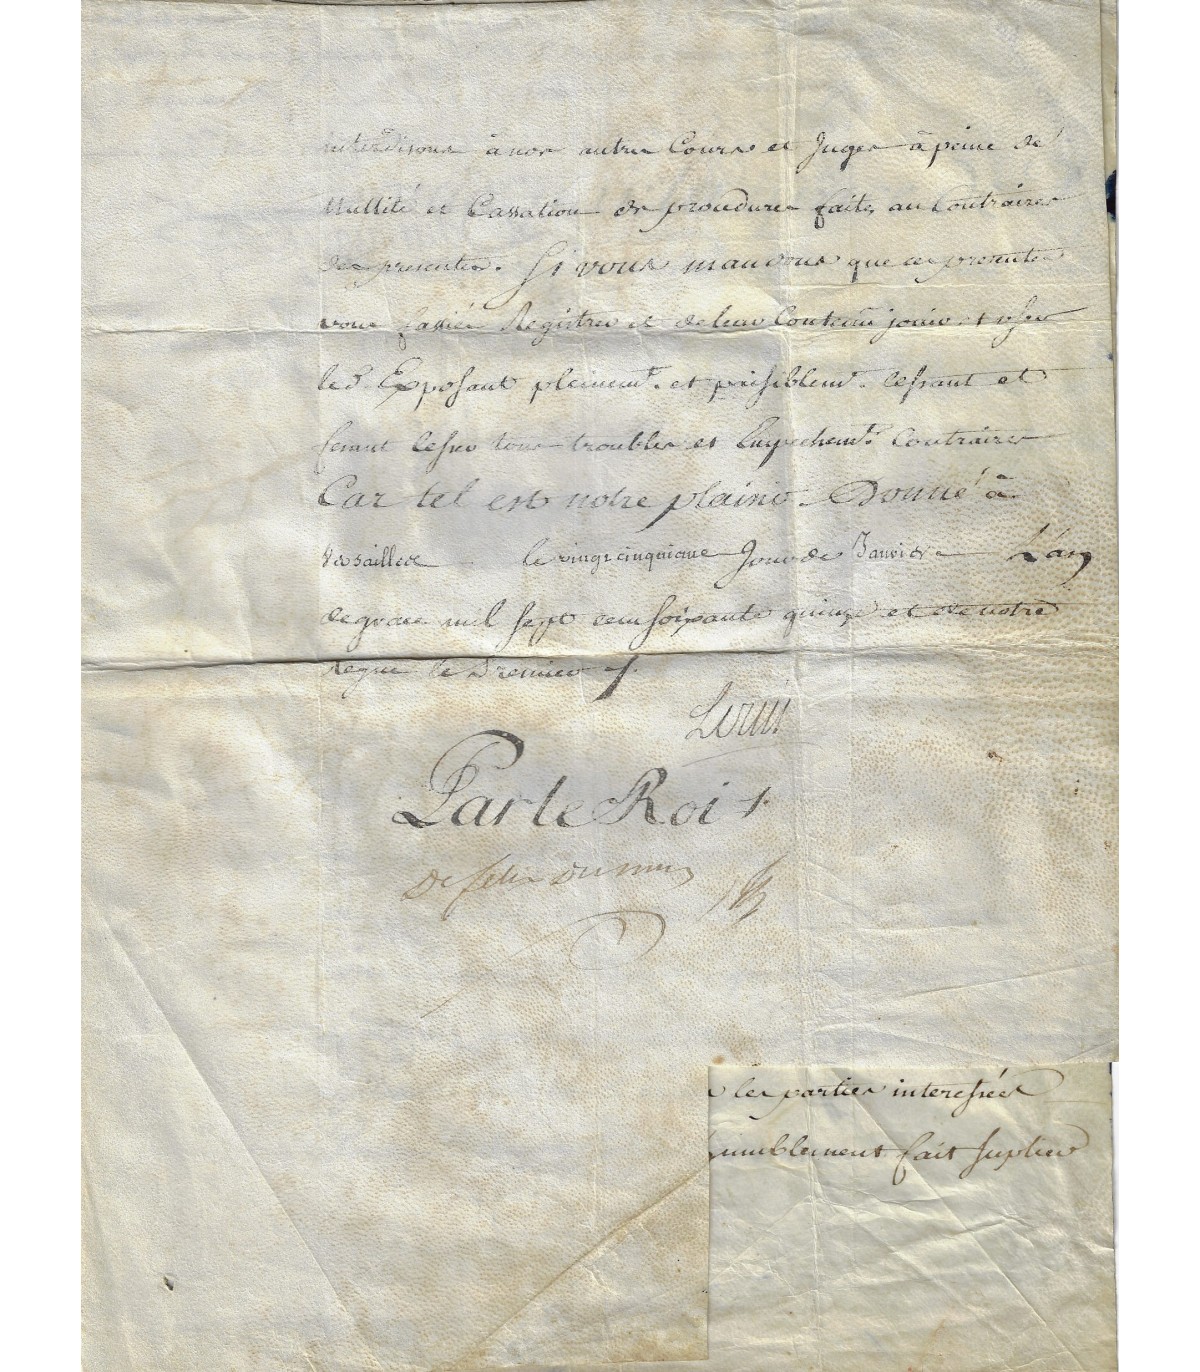 interdisons à nos autres Cours et Juges à peine de
Nullité et Cassation de procedures faites au Contraires
des presentes. Si vous mandons que ces presentes
vous fassiés Registrer et de leur Contenu jouir et user
led. Exposant pleinemt. et paisiblemt. cessant et
fesant cesser tous troubles et Empechemts. Contraires
Car tel est notre plaisir. Donné à
Versailles le vingt cinquieme Jour de Janvier L'an
de grace mil sept cens soixante quinze et de notre
Regne le Premier
Louis
Par le Roi
les parties interessées
humblement fait suplier